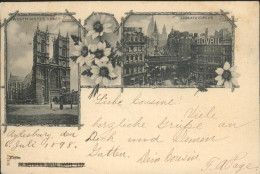 WESTMINSTER ABBEY
Liebe Cousine
Viele
herzliche Grüße an
Dich und Deinen
Gatten.
Dein Cousin
Aylesbury den
Juli 1898.